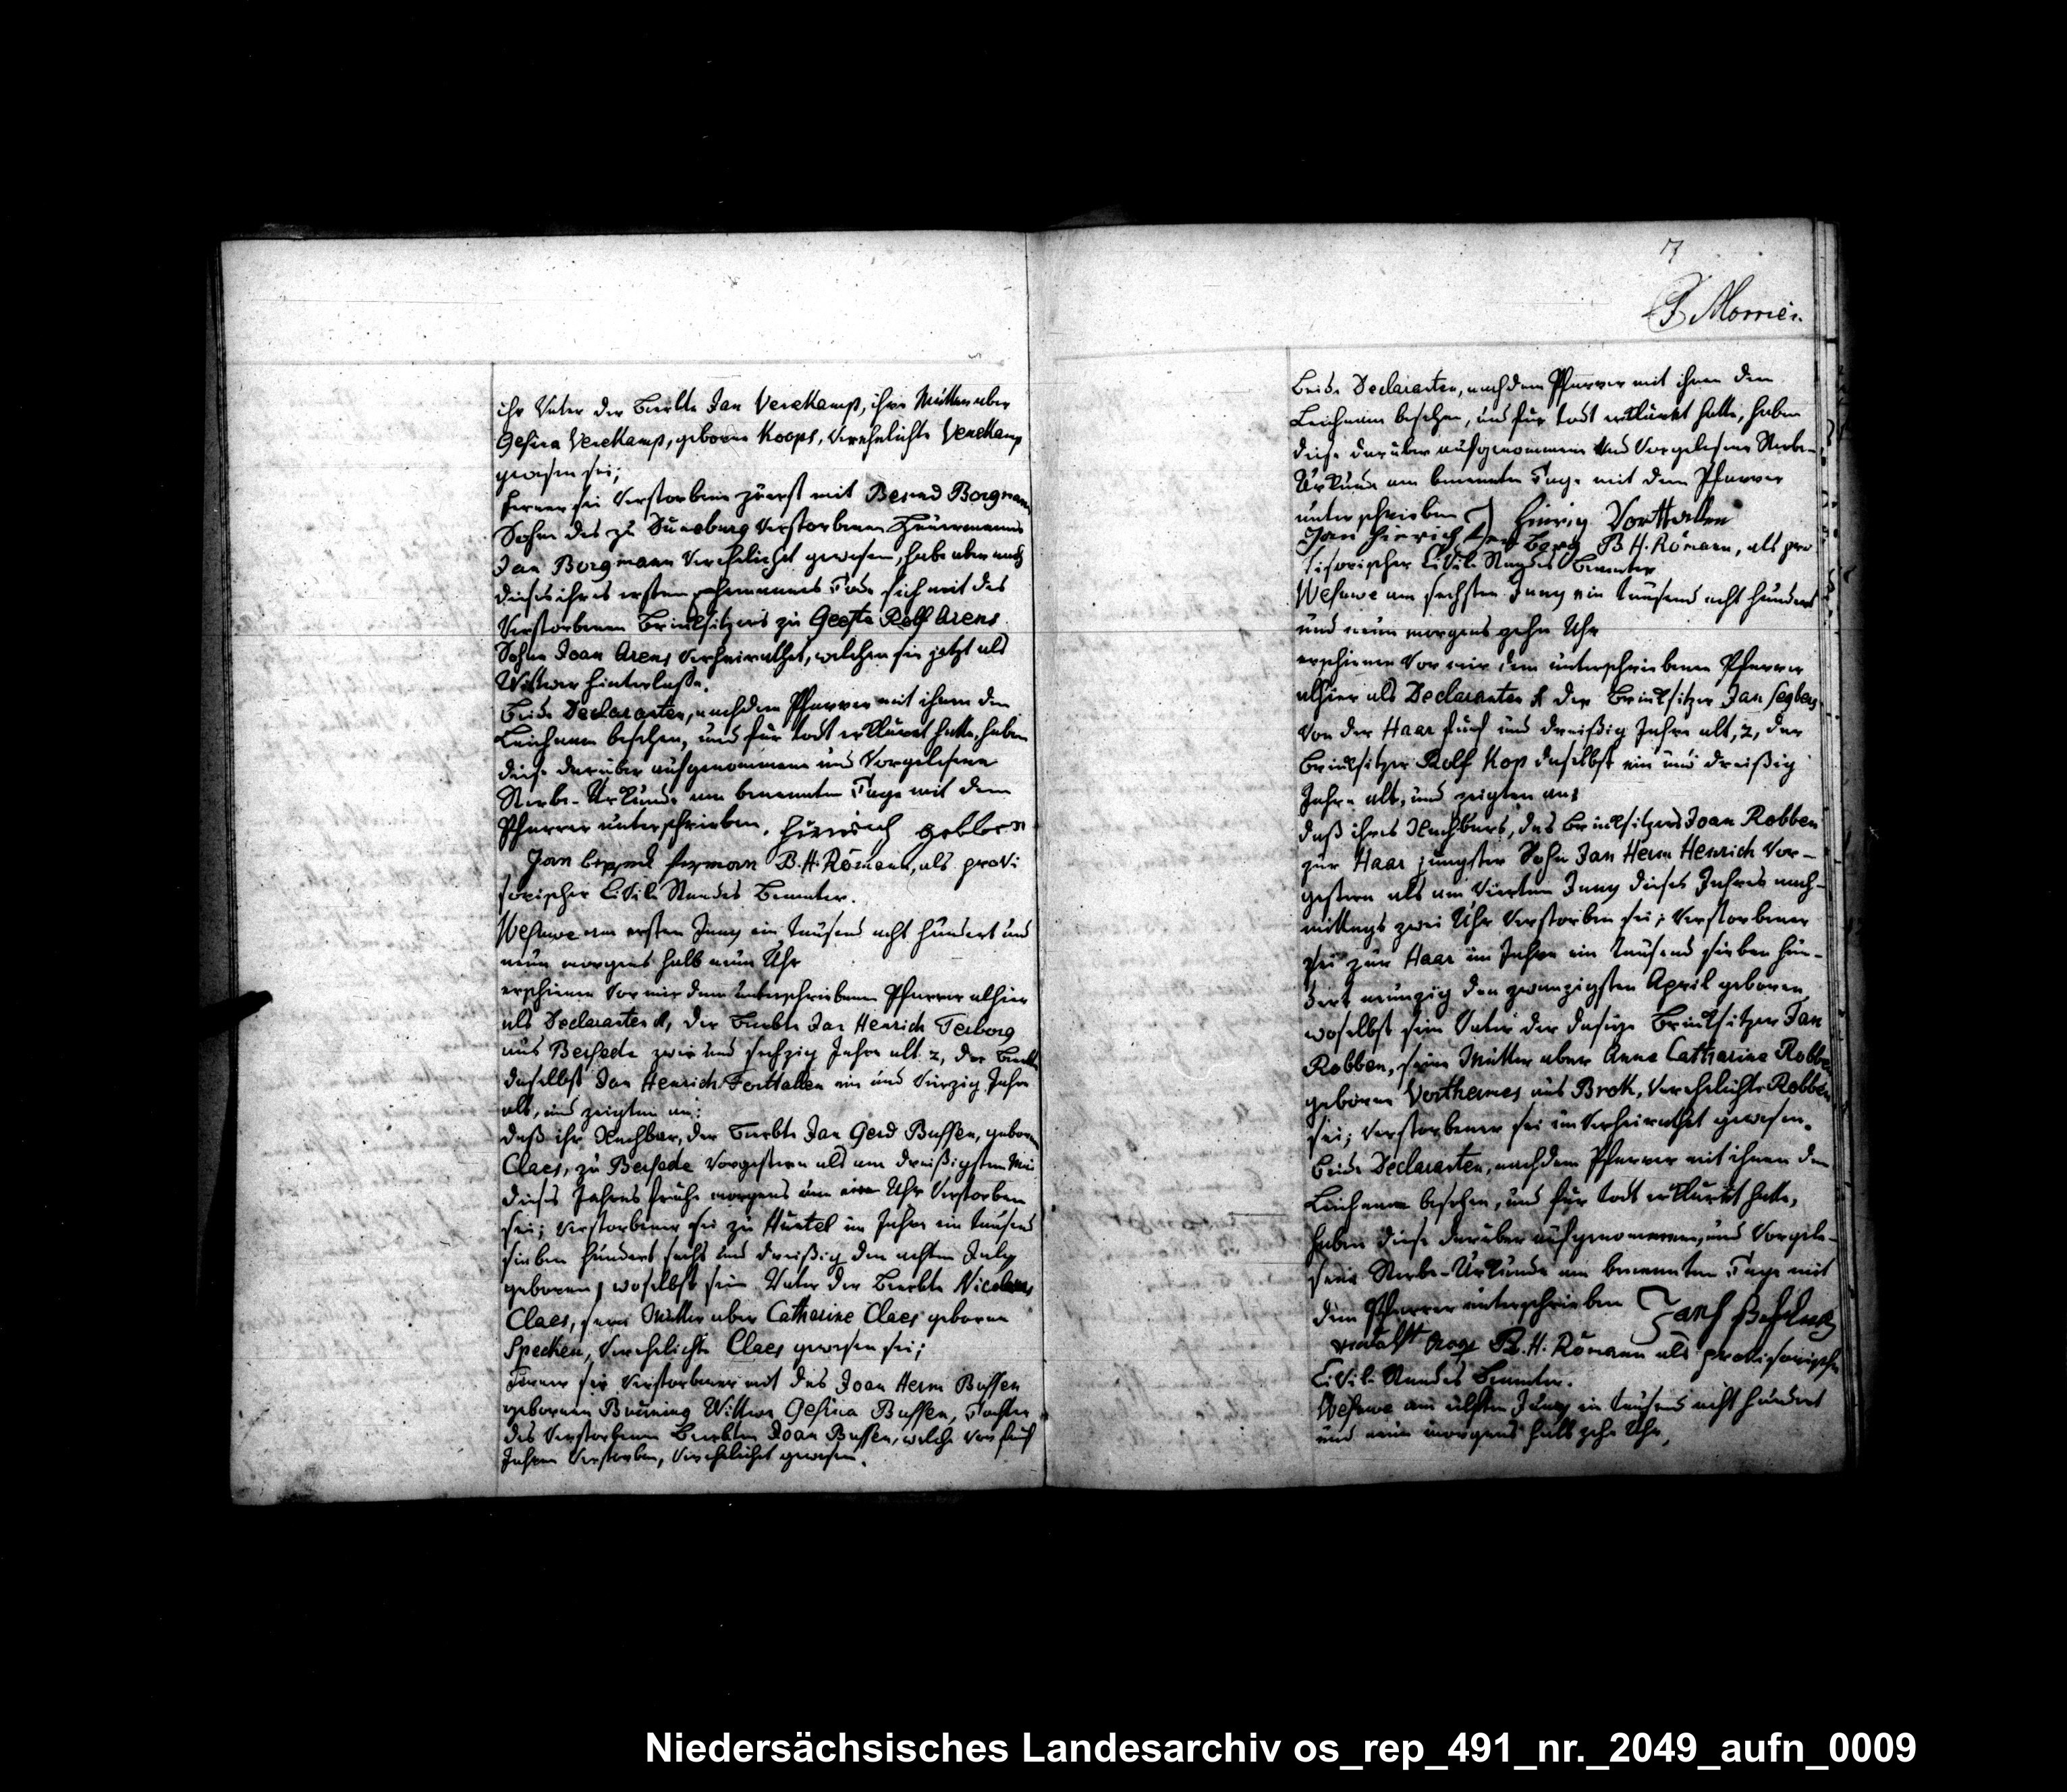 ihr Vater der Beerbte Jan Verekamp, ihre Mutter aber
Gesina Verekamp, geborne Koops, verehelichte Verekamp
gewesen sei;
Ferner sei Verstorbene zuerst mit Berend Borgmann
Sohn des zu verstorbenen Heuermanns
Jan Borgmann verehelichet gewesen, habe aber nach
dieses ihres ersten Ehemannes Tode sich mit des
verstorbenen Brinksitzers zu Geeste Rolf Arens
Sohn Joan Arens verheirathet, welchen sie jetzt als
Wittwer hinterlasse.
Beide Declaranten, nachdem Pfarrer mit ihnen den
Leichnam besehen, und für todt erkläret hatte, haben
diese darüber aufgenommene und vorgelesene
Sterbe-Urkunde am benannten Tage mit dem
Pfarrer unterschrieben.
Jan B. H. Römann, als provi
sorischer Civil-Standes Beamter.
Wesuwe am ersten Juny ein tausend acht hundert und
neun morgens halb neun Uhr
erschienen vor mir dem unterschriebenen Pfarrer alhier
als Declaranten 1, der Beerbte Jan Henrich Terborg
aus Bersede zwei und sechzig Jahre alt 2, der Beerbte
daselbst Jan Henrich Forthallen ein und vierzig Jahre
alt, und zeigten an:
daß ihr Nachbar, der Beerbte Jan Gerd Bussen, geborn
Claes, zu Bersede vorgestern als am dreißigsten Mai
dieses Jahres frühe morgens um ein Uhr verstorben
sei; Verstorbener sei zu Huntel im Jahre ein tausend
sieben hundert sechs und dreißig den achten July
geboren, woselbst sein Vater der Beerbte Nicolaus
Claes, seine Mutter aber Catharine Claes geborne
Specken, verehelichte Claes gewesen sei;
Ferner sei Verstorbener mit des Joan Herm Bussen
gebornen Bruning Wittwe Gesina Bussen, Tochter
des verstorbenen Beerbten Joan Bussen, welche vor fünf
Jahren verstorben, verehelichet gewesen.
7
Morrien
beide Declaranten, nachdem Pfarrer mit ihnen den
Leichnam besehen, und für todt erkläret hatte, haben
diese darüber aufgenommene und vorgelesene Sterbe-
Urkunde am benannten Tage mit dem Pfarrer
unterschrieben Hinrig Vorthallen
Jan Hinrich ter Borg B H. Römann, als pro
visorischer Civil-Standes Beamter
Wesuwe am sechsten Juny ein tausend acht hundert
und neun morgens zehn Uhr
erschienen vor mir dem unterschriebenen Pfarrer
alhier als Declaranten 1 der Brinksitzer Jan Segbers
von der Haar fünf und dreißig Jahre alt, 2, der
Brinksitzer Rolf Kop daselbst ein und dreißig
Jahre alt, und zeigten an:
daß ihres Nachbars, des Brinksitzers Joan Robben
zur Haar jüngster Sohn Jan Herm Henrich vor-
gestern als am vierten Juny dieses Jahres nach-
mittags zwei Uhr verstorben sei; Verstorbener
sei zur Haar im Jahre ein tausend sieben hun-
dert neunzig den zwanzigsten April geboren
woselbst sein Vater der dasige Brinksitzer Jan
Robben, seine Mutter aber Anna Catharine Robben
geborne Vorthemes aus Brok, verehelichte Robben
sei; Verstorbener sei unverheirathet gewesen.
Beide Declaranten, nachdem Pfarrer mit ihnen den
Leichnam besehen, und für todt erkläret hatte,
haben diese darüber aufgenommene, und vorgele-
sene Sterbe-Urkunde am benannten Tage mit
dem Pfarrer unterschrieben
B. H. Römann als provisorischer
Civil-Standes Beamter.
Wesuwe am elften Juny ein tausend acht hundert
und neun morgens halb zehn Uhr,
Niedersächsisches Landesarchiv os_rep_491_nr._2049_aufn_0009